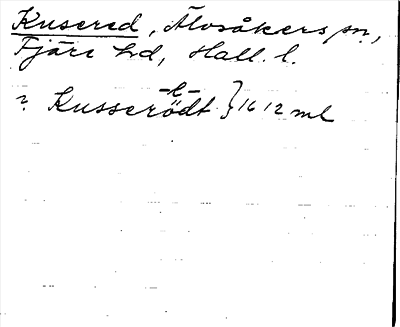 Kusered, Älvsåkers sn,
Fjäre hd, Hall. l.
-k-
? Kusserödt } 1612 ml